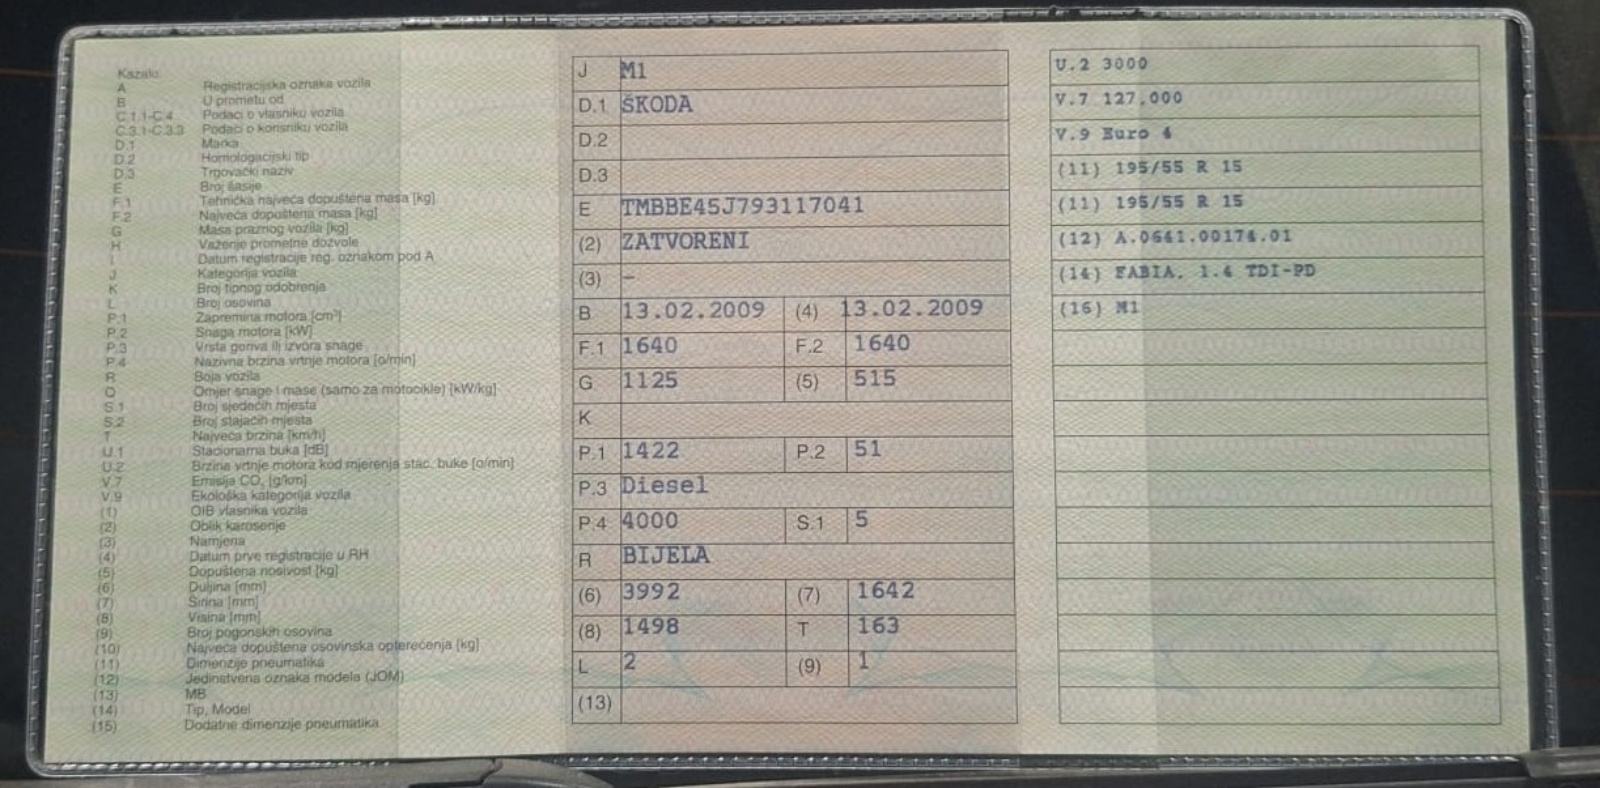 Kazalo:
A Registracijska oznaka vozila
B U prometu od
C.1.1-C.4 Podaci o vlasniku vozila
C.3.1-C.3.3 Podaci o korisniku vozila
D.1 Marka
D.2 Homologacijski tip
D.3 Trgovački naziv
E Broj šasije
F.1 Tehnička najveća dopuštena masa [kg]
F.2 Najveća dopuštena masa [kg]
G Masa praznog vozila [kg]
H Važenje prometne dozvole
I Datum registracije reg. oznakom pod A
J Kategorija vozila
K Broj tipnog odobrenja
L Broj osovina
P.1 Zapremina motora [cm³]
P.2 Snaga motora [kW]
P.3 Vrsta goriva ili izvora snage
P.4 Nazivna brzina vrtnje motora [o/min]
R Boja vozila
Q Omjer snage i mase (samo za motocikle) [kW/kg]
S.1 Broj sjedećih mjesta
S.2 Broj stajaćih mjesta
T Najveća brzina [km/h]
U.1 Stacionarna buka [dB]
U.2 Brzina vrtnje motora kod mjerenja stac. buke [o/min]
V.7 Emisija CO₂ [g/km]
V.9 Ekološka kategorija vozila
(1) OIB vlasnika vozila
(2) Oblik karoserije
(3) Namjena
(4) Datum prve registracije u RH
(5) Dopuštena nosivost [kg]
(6) Duljina [mm]
(7) Širina [mm]
(8) Visina [mm]
(9) Broj pogonskih osovina
(10) Najveća dopuštena osovinska opterećenja [kg]
(11) Dimenzije pneumatika
(12) Jedinstvena oznaka modela (JOM)
(13) MB
(14) Tip, Model
(15) Dodatne dimenzije pneumatika
J M1
D.1 ŠKODA
D.2
D.3
E TMBBE45J793117041
(2) ZATVORENI
(3) –
B 13.02.2009 (4) 13.02.2009
F.1 1640 F.2 1640
G 1125 (5) 515
K
P.1 1422 P.2 51
P.3 Diesel
P.4 4000 S.1 5
R BIJELA
(6) 3992 (7) 1642
(8) 1498 T 163
L 2 (9) 1
(13)
U.2 3000
V.7 127.000
V.9 Euro 4
(11) 195/55 R 15
(11) 195/55 R 15
(12) A.0641.00174.01
(14) FABIA. 1.4 TDI-PD
(16) M1